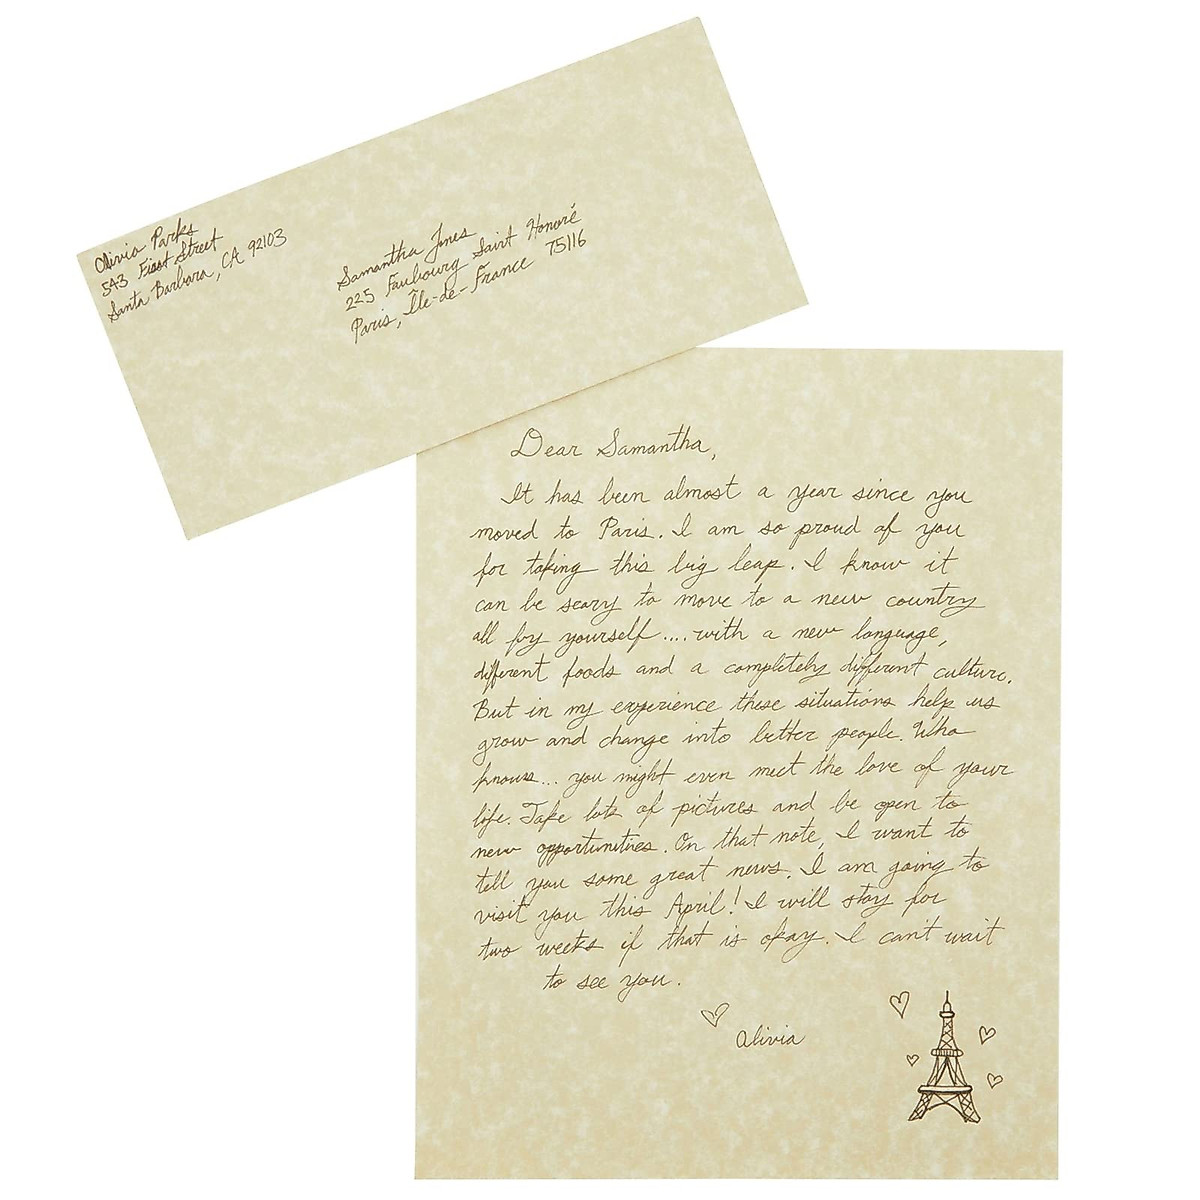 Olivia Parks
543 First Street
Santa Barbara, CA 92103
Samantha Jones
225 Faubourg Saint Honoré
Paris, Île-de-France 75116
Dear Samantha,
It has been almost a year since you
moved to Paris. I am so proud of you
for taking this big leap. I know it
can be scary to move to a new country
all by yourself.... with a new language,
different foods and a completely different culture.
But in my experience these situations help us
grow and change into better people. Who
knows... you might even meet the love of your
life. Take lots of pictures and be open to
new opportunities. On that note, I want to
tell you some great news. I am going to
visit you this April! I will stay for
two weeks if that is okay. I can't wait
to see you.
Olivia